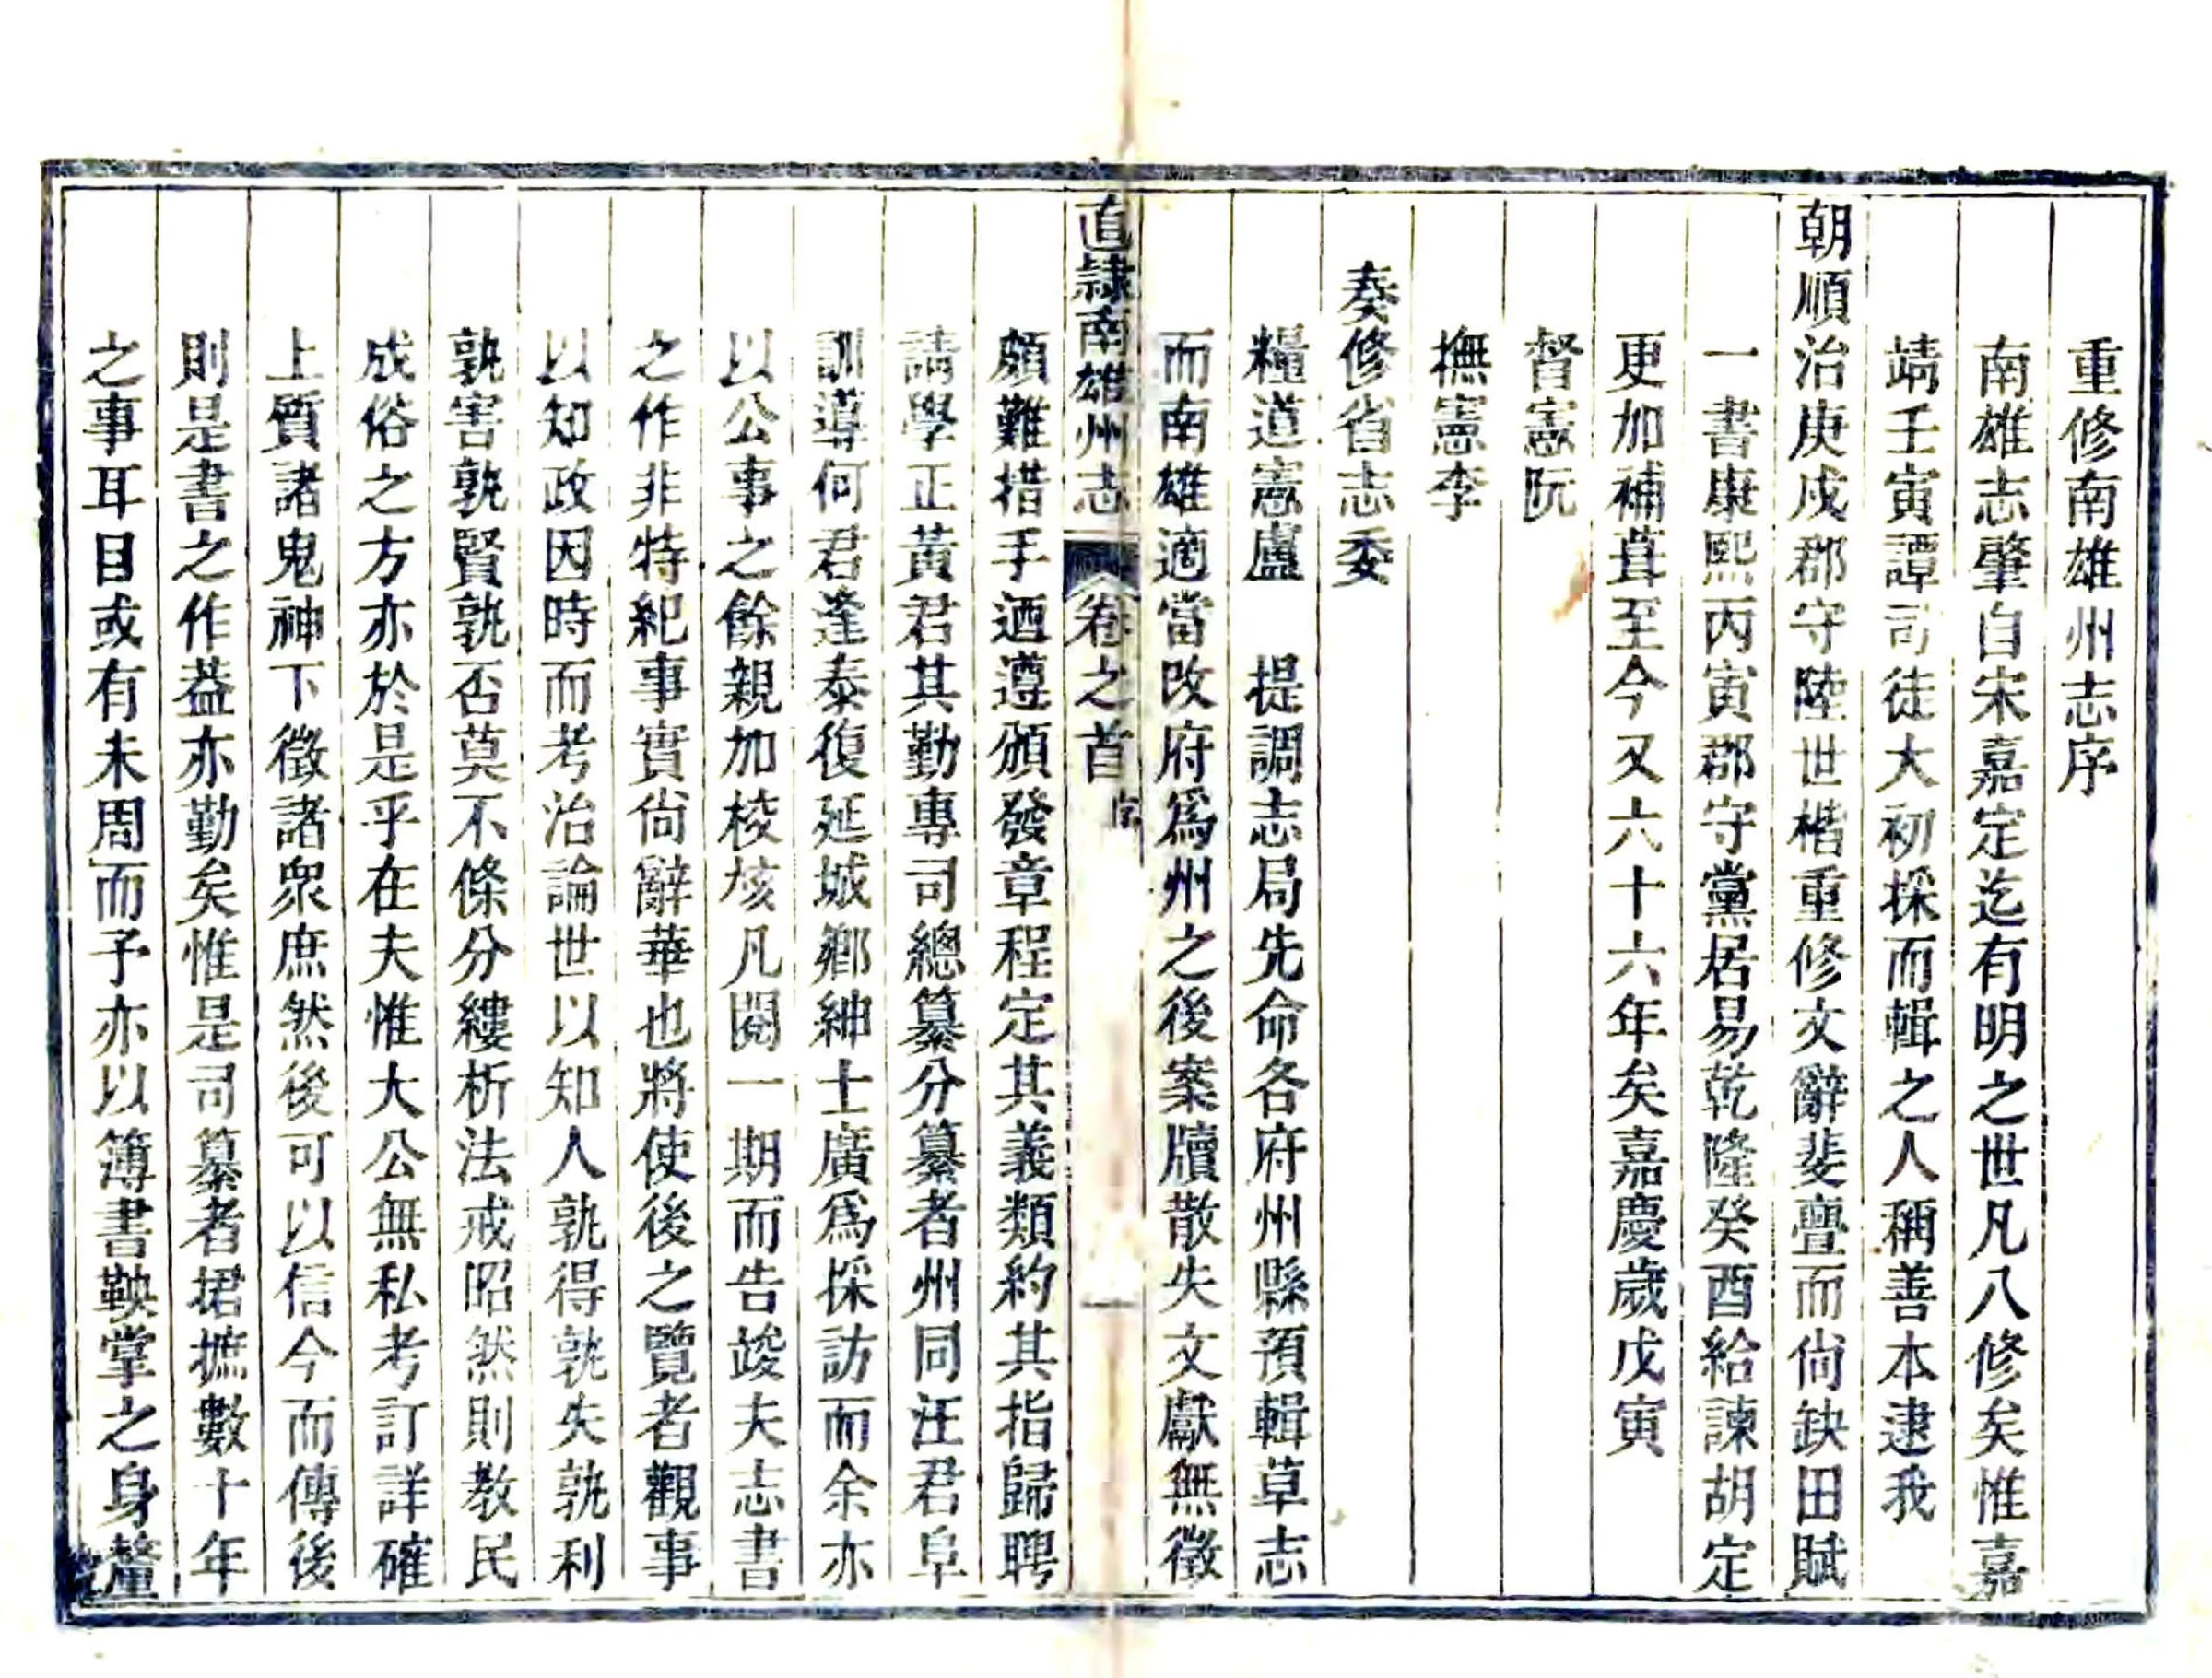 重修南雄州志序
南雄志肇自宋嘉定迄有明之世凡八修矣惟嘉
靖壬寅譚司徒大初採而輯之人稱善本逮我
朝順治庚戍郡守陸世楷重修文辭斐亹而尙缺田賦
一書康熙丙寅郡守黨居易乾隆癸酉給諫胡定
更加補葺至今又六十六年矣嘉慶歲戊寅
督憲阮
撫憲李
奏修省志委
糧道憲盧 提調志局先命各府州縣預輯草志
而南雄適當改府爲州之後案牘散失文獻無徵
直隷南雄州志 卷之首 序 一
頗難措手迺遵頒發章程定其義類約其指歸聘
請學正黃君其勤專司總纂分纂者州同汪君阜
訓導何君逢泰復延城鄉紳士廣爲採訪而余亦
以公事之餘親加棱核凡閱一期而告竣夫志書
之作非特紀事實尙辭華也將使後之覽者觀事
以知政因時而考治論世以知人孰得孰失孰利
孰害孰賢孰否莫不條分縷析法戒昭然則教民
成俗之方亦於是乎在夫惟大公無私考訂詳確
上質諸鬼神下徵諸衆庶然後可以信今而傳後
則是書之作葢亦勤矣惟是司纂者捃摭數十年
之事耳目或有未周而予亦以簿書鞅掌之身釐